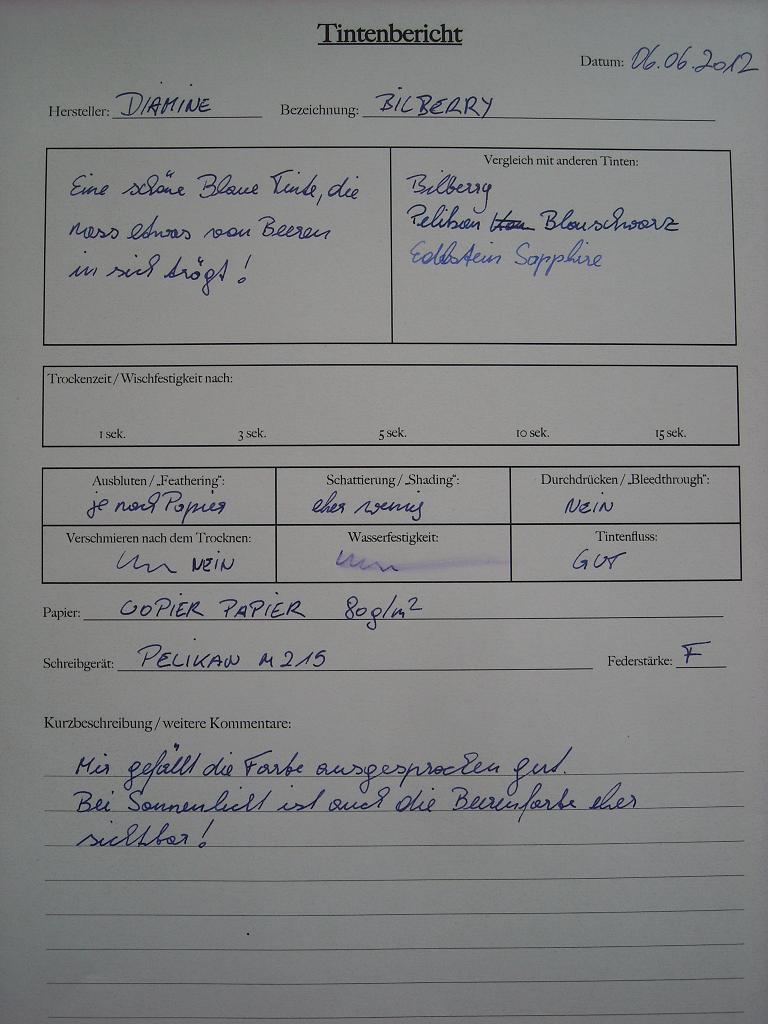 Tintenbericht
Datum: 06.06.2012
Hersteller: DIAMINE Bezeichnung: BILBERRY
Eine schöne Blaue Tinte, die
etwas von Beeren
in sich trägt!
Vergleich mit anderen Tinten:
Bilberry
Pelikan Blauschwarz
Edelstein Sapphire
Trockenzeit / Wischfestigkeit nach:
1 sek. 3 sek. 5 sek. 10 sek. 15 sek.
Ausbluten / „Feathering": Schattierung / „Shading": Durchdrücken / „Bleedthrough":
je nach Papier eher wenig NEIN
Verschmieren nach dem Trocknen: Wasserfestigkeit: Tintenfluss:
NEIN GUT
Papier: COPIER PAPIER 80g/m²
Schreibgerät: PELIKAN M215 Federstärke: F
Kurzbeschreibung / weitere Kommentare:
Mir gefällt die Farbe ausgesprochen gut.
Bei Sonnenlicht ist auch die Beerenfarbe eher
sichtbar!